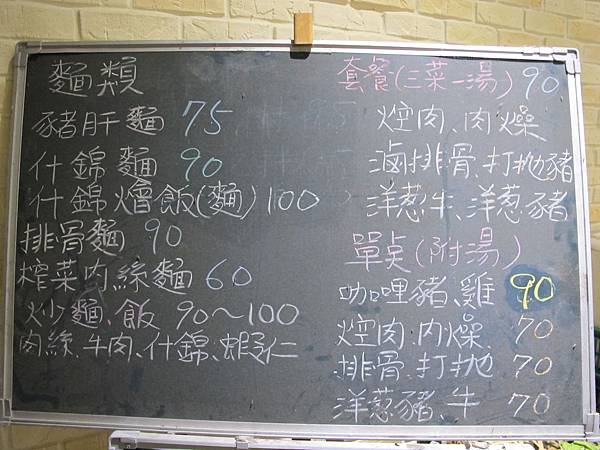 麵類
豬肝麵 75
什錦麵 90
什錦燴飯(麵) 100
排骨麵 90
榨菜肉絲麵 60
炒麵、飯 90~100
肉絲、牛肉、什錦、蝦仁
套餐(三菜一湯) 90
焢肉、肉燥
滷排骨、打拋豬
洋葱牛、洋葱豬
單点(附湯)
咖哩豬、雞 90
焢肉、肉燥、70
排骨、打拋 70
洋葱豬、牛 70